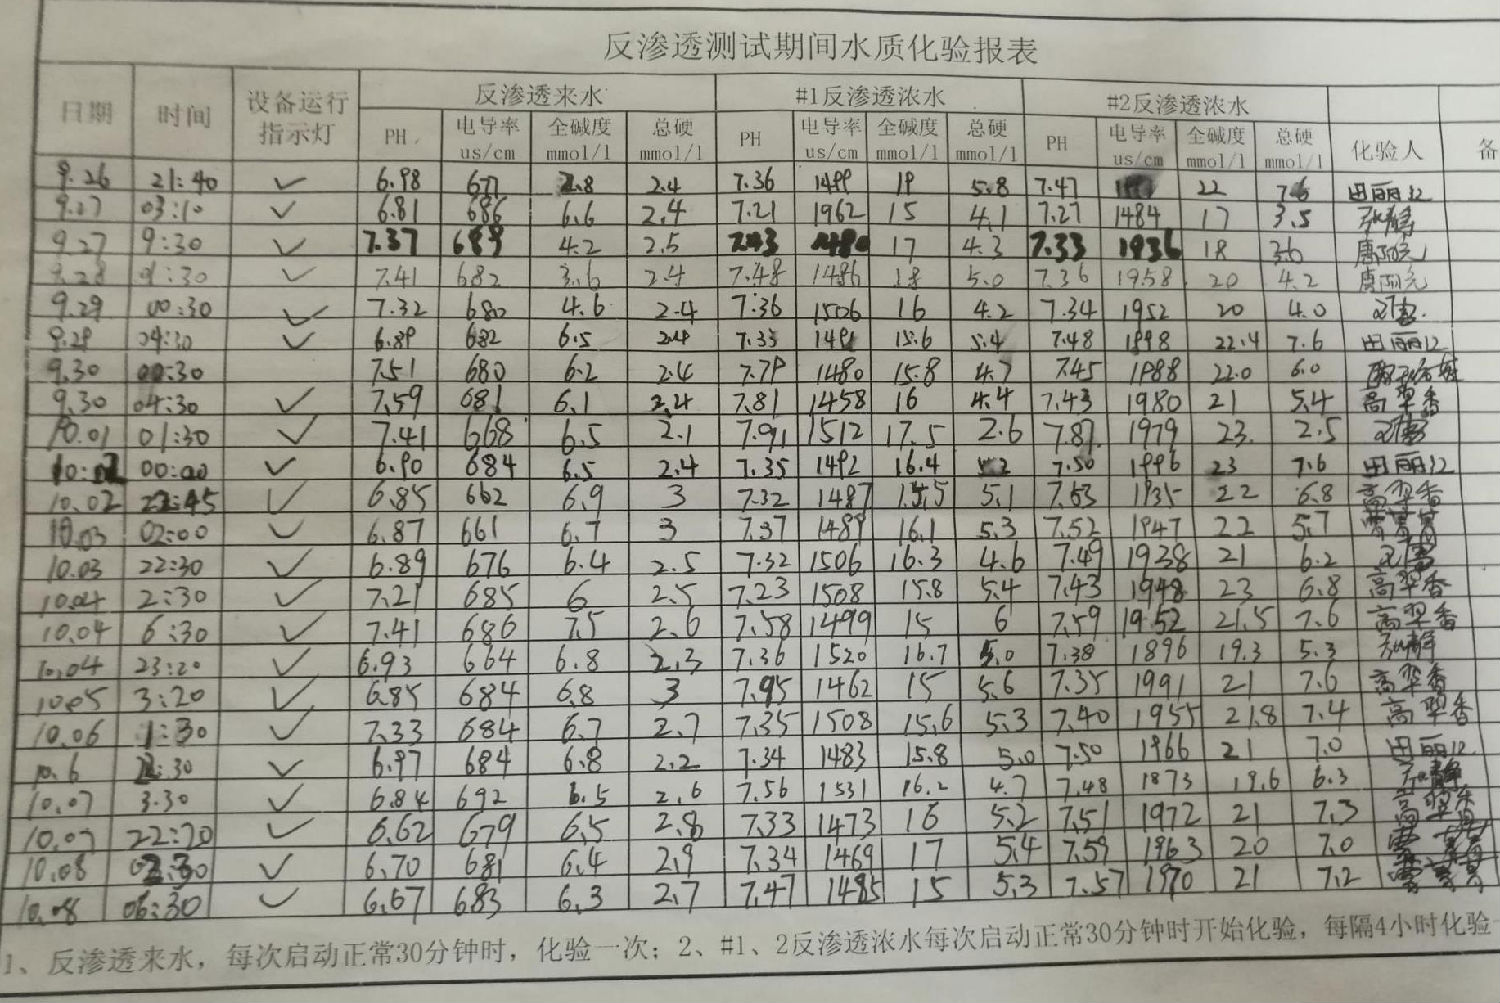 反渗透测试期间水质化验报表
日期 时间 设备运行指示灯 反渗透来水 #1反渗透浓水 #2反渗透浓水 化验人 备
PH 电导率 us/cm 全碱度 mmol/l 总硬 mmol/l PH 电导率 us/cm 全碱度 mmol/l 总硬 mmol/l PH 电导率 us/cm 全碱度 mmol/l 总硬 mmol/l
9.26 21:40 ✓ 6.98 677 2.8 2.4 7.36 1499 19 5.8 7.47 22 田丽江
9.27 03:10 ✓ 6.81 686 6.6 2.4 7.21 1962 15 4.1 7.27 1484 17 3.5
9.27 9:30 ✓ 7.37 689 4.2 2.5 7.43 1480 17 4.3 7.33 1936 18 3.6
9.28 9:30 ✓ 7.41 682 3.6 2.4 7.48 1486 18 5.0 7.36 1958 20 4.2
9.29 00:30 ✓ 7.32 680 4.6 2.4 7.36 1506 16 4.2 7.34 1952 20 4.0
9.29 04:30 ✓ 6.89 682 6.5 2.4 7.33 1491 15.6 5.4 7.48 1998 22.4 7.6 田丽江
9.30 00:30 7.51 680 6.2 2.4 7.79 1480 15.8 4.7 7.45 1988 22.0 6.0
9.30 04:30 ✓ 7.59 681 6.1 2.4 7.81 1458 16 4.4 7.43 1980 21 5.4 高翠香
10.01 01:30 ✓ 7.41 668 6.5 2.1 7.91 1512 17.5 2.6 7.87 1979 23. 2.5
10.02 00:00 ✓ 6.90 684 6.5 2.4 7.35 1492 16.4 7.50 1996 23 7.6 田丽江
10.02 22:45 ✓ 6.85 662 6.9 3 7.32 1487 15.5 5.1 7.63 1935 22 6.8 高翠香
10.03 02:00 ✓ 6.87 661 6.7 3 7.37 1489 16.1 5.3 7.52 1947 22 5.7
10.03 22:30 ✓ 6.89 676 6.4 2.5 7.32 1506 16.3 4.6 7.49 1938 21 6.2
10.04 2:30 ✓ 7.21 685 6 2.5 7.23 1508 15.8 5.4 7.43 1948 23 6.8 高翠香
10.04 6:30 ✓ 7.41 686 7.5 2.6 7.58 1499 15 6 7.59 1952 21.5 7.6 高翠香
10.04 23:20 ✓ 6.93 664 6.8 2.3 7.36 1520 16.7 5.0 7.38 1896 19.3 5.3
10.05 3:20 ✓ 6.85 684 6.8 3 7.95 1462 15 5.6 7.35 1991 21 7.6 高翠香
10.06 1:30 ✓ 7.33 684 6.7 2.7 7.35 1508 15.6 5.3 7.40 1955 21.8 7.4 高翠香
10.6 :30 ✓ 6.97 684 6.8 2.2 7.34 1483 15.8 5.0 7.50 1966 21 7.0 田丽江
10.07 3:30 ✓ 6.84 692 6.5 2.6 7.56 1531 16.2 4.7 7.48 1873 19.6 6.3
10.07 22:20 ✓ 6.62 679 6.5 2.8 7.33 1473 16 5.2 7.51 1972 21 7.3 高翠香
10.08 02:30 ✓ 6.70 681 6.4 2.9 7.34 1469 17 5.4 7.59 1963 20 7.0
10.08 06:30 ✓ 6.67 683 6.3 2.7 7.47 1485 15 5.3 7.57 1970 21 7.2
1、反渗透来水，每次启动正常30分钟时，化验一次；2、#1、2反渗透浓水每次启动正常30分钟时开始化验，每隔4小时化验一